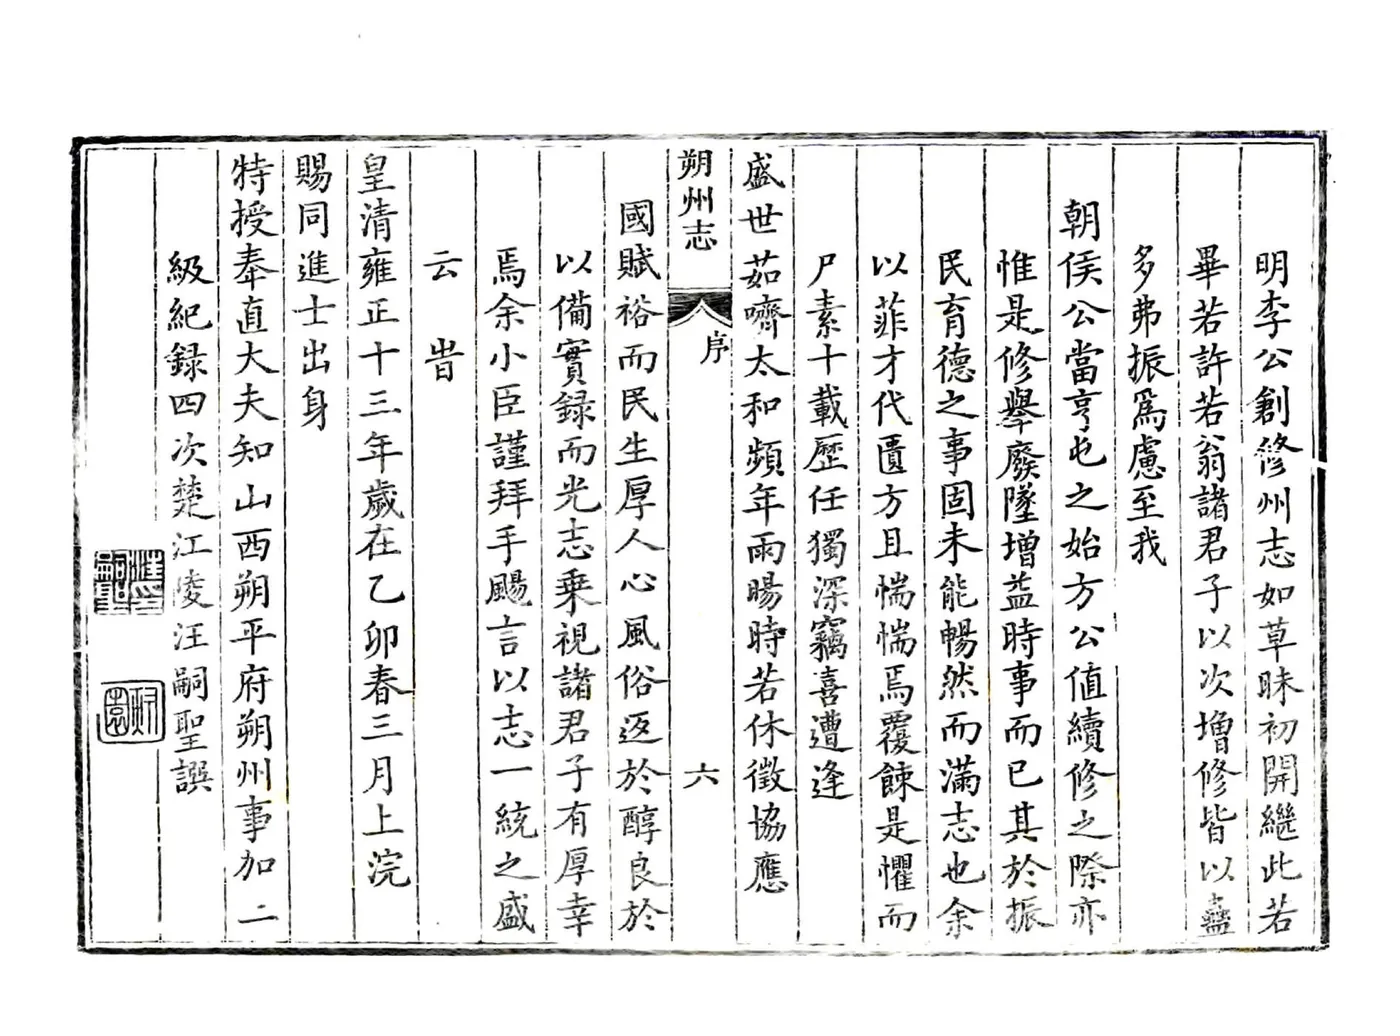 明李公創修州志如草昧初開繼此若
畢若許若翁諸君子以次增修皆以蠱
多弗振爲慮至我
朝侯公當亨屯之始方公值續修之際亦
惟是修舉廢墜增益時事而已其於振
民育德之事固未能暢然而滿志也余
以菲才代匱方且惴惴焉覆餗是懼而
尸素十載歷任獨深竊喜遭逢
盛世茹嚌太和頻年雨暘時若休徵協應
朔州志 序 六
國賦裕而民生厚人心風俗返於醇良於
以備實録而光志乗視諸君子有厚幸
焉余小臣謹拜手颺言以志一統之盛
云 旹
皇清雍正十三年歲在乙卯春三月上浣
賜同進士出身
特授奉直大夫知山西朔平府朔州事加二
級紀録四次楚江陵汪嗣聖譔